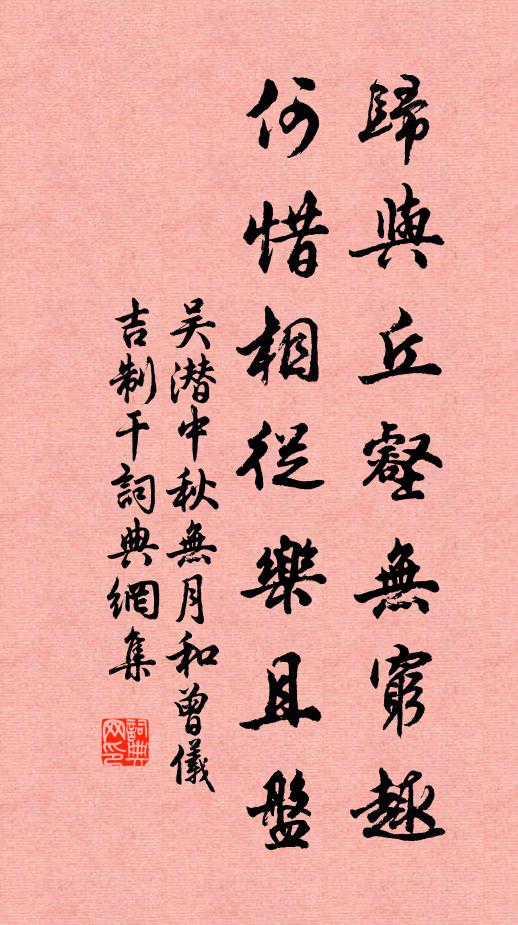 歸與丘壑無窮趣
何惜相從樂且盤
吴潛中秋無月和曾儀
吉制干詞典網集
詞典網印